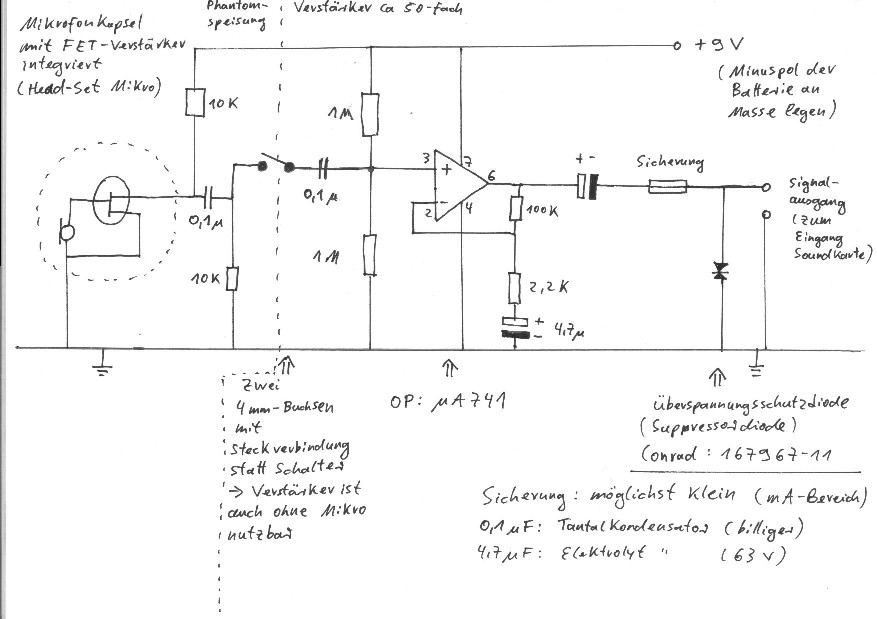 Mikrofonkapsel
mit FET-Verstärker
integriert
(Head-Set Mikro)
Phantom-
speisung
Verstärker ca 50-fach
+9V
(Minuspol der
Batterie an
Masse legen)
10K
1M
3
+
7
6
-
2
4
+ -
Sicherung
Signal-
ausgang
(zum
Eingang
Soundkarte)
0,1µ
0,1µ
100K
10K
1M
2,2K
+
-
4,7µ
Zwei
4mm-Buchsen
mit
Steckverbindung
statt Schalter
→ Verstärker ist
auch ohne Mikro
nutzbar
OP: µA741
Überspannungsschutzdiode
(Suppressordiode)
Conrad: 167967-11
Sicherung: möglichst klein (mA-Bereich)
0,1µF: Tantalkondensator (billiger)
4,7µF: Elektrolyt " (63V)